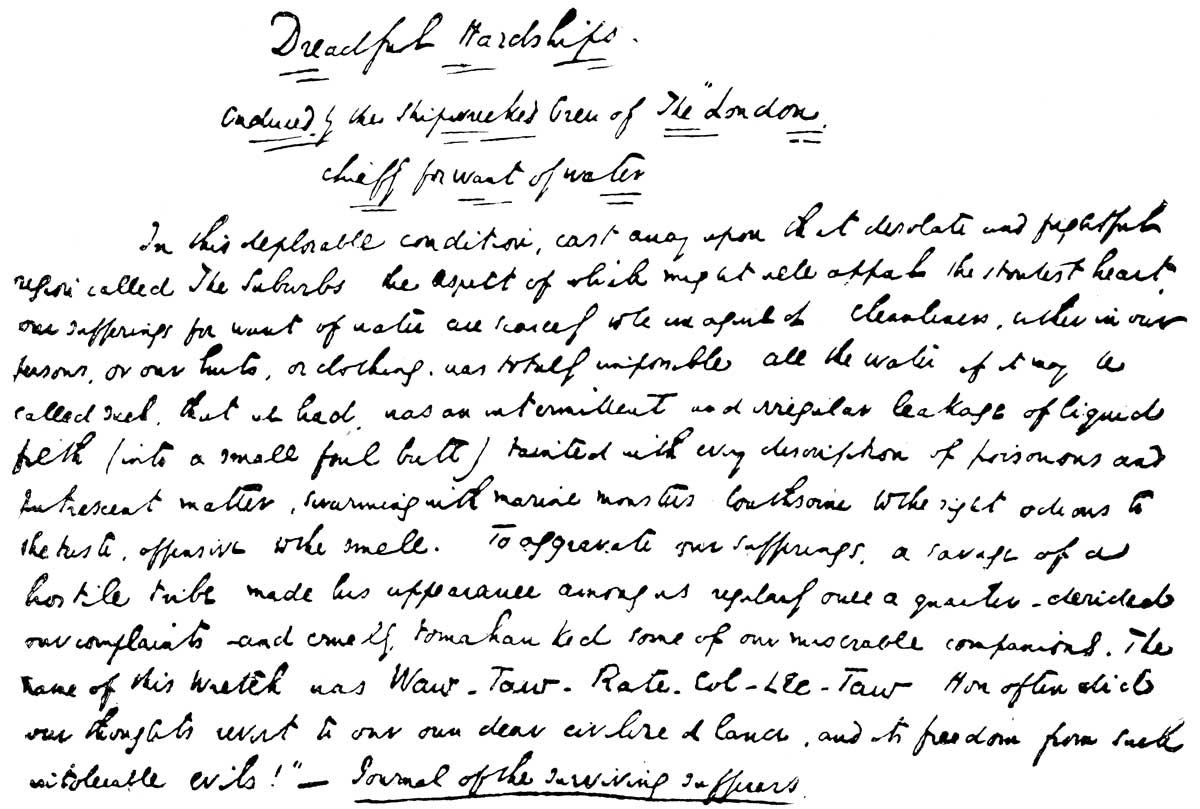 Dreadful Hardships.
Endured by the Shipwrecked Crew of The "London,
chiefly for want of water
In this deplorable condition, cast away upon that desolate and frightful
region called The Suburbs the aspect of which might well appal the stoutest heart,
our sufferings for want of water are scarcely to be imagined. Cleanliness, either in our
persons, or our huts, or clothing, was totally impossible all the water if it may be
called such, that we had, was an intermittent and irregular leakage of liquid
filth (into a small foul butt) tainted with every description of poisonous and
putrescent matter, swarming with marine monsters loathsome to the sight odious to
the taste, offensive to the smell. To aggravate our sufferings, a savage of a
hostile tribe made his appearance among us regularly once a quarter - derided
our complaints - and cruelly tomahawked some of our miserable companions. The
name of this wretch was Waw-Taw-Rate-Col-Lec-Taw How often did
our thoughts revert to our own dear civilised land, and its freedom from such
intolerable evils!" — Journal of the surviving sufferers